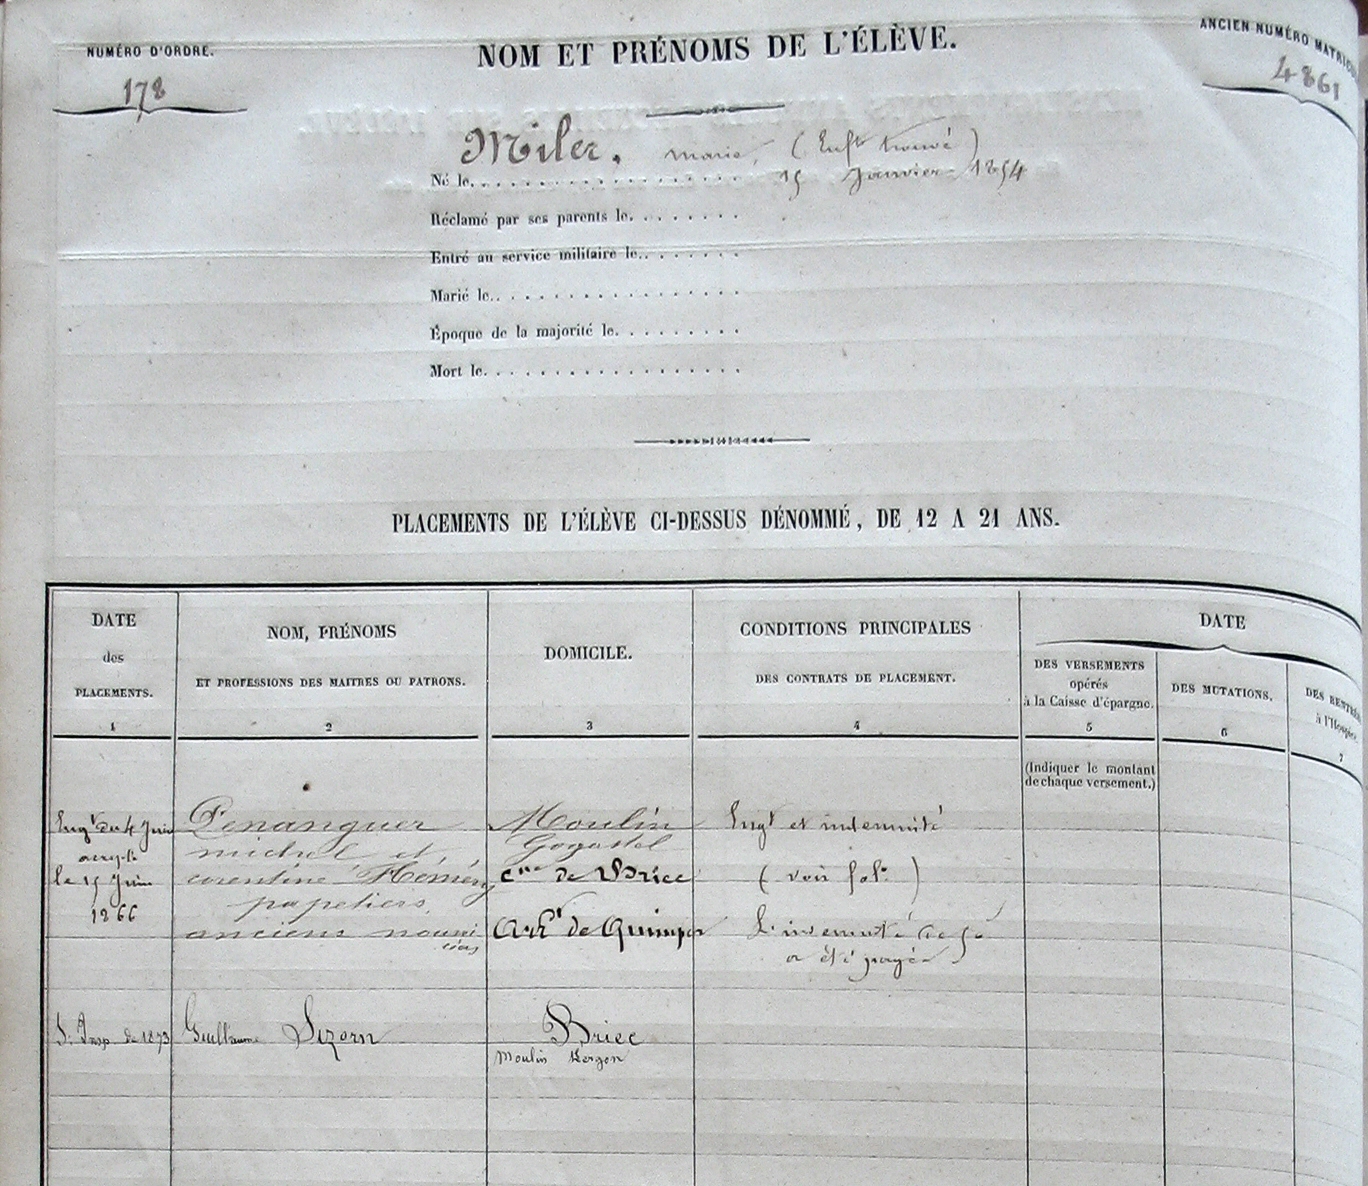 NUMÉRO D'ORDRE.
178
NOM ET PRÉNOMS DE L'ÉLÈVE.
ANCIEN NUMÉRO MATRICU
4861
Miler, marie, (Enft trouvé)
Né le. 15 Janvier 1854
Réclamé par ses parents le.
Entré au service militaire le.
Marié le.
Époque de la majorité le.
Mort le.
PLACEMENTS DE L'ÉLÈVE CI-DESSUS DÉNOMMÉ, DE 12 A 21 ANS.
DATE
des
PLACEMENTS.
1
NOM, PRÉNOMS
ET PROFESSIONS DES MAITRES OU PATRONS.
2
DOMICILE.
3
CONDITIONS PRINCIPALES
DES CONTRATS DE PLACEMENT.
4
DATE
DES VERSEMENTS
opérés
à la Caisse d'épargne.
5
(Indiquer le montant
de chaque versement.)
DES MUTATIONS.
6
DES RENTRÉE
à l'Hospice.
7
Engt du 4 Juin
le 15 Juin
1866
Penanguer
michel et
corentine Héméry
papetiers,
anciens nourri
ciers
Moulin
Gogastel
cne de Briec
Arrt de Quimper
Engt et indemnité
(voir fol.)
L'indemnité de 50
a été payée
S. Insp. de 1873
Guillaume Lizorn
Briec
Moulin Kergon